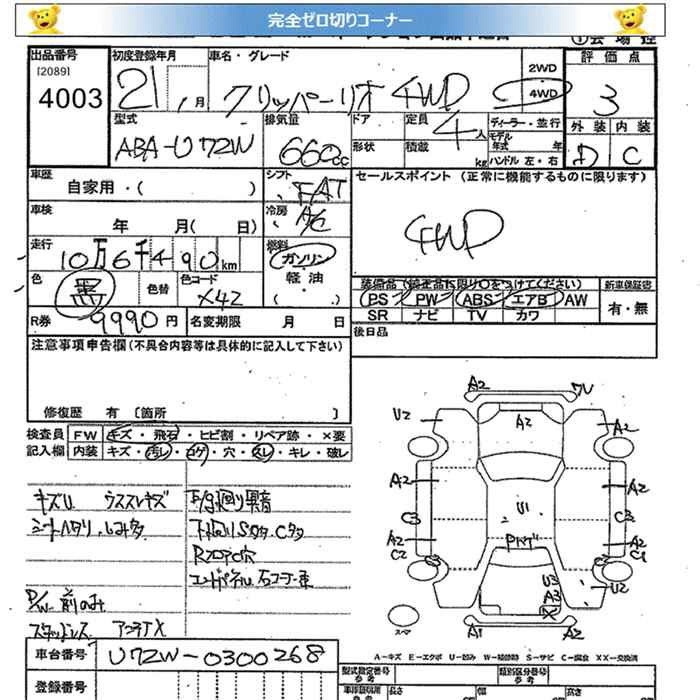 完全ゼロ切りコーナー
出品番号 初度登録年月 車名・グレード 2WD 評価点
[2089] 4003 21 月 クリッパーリオ 4WD 4WD 3
型式 排気量 ドア 定員 ディーラー・並行 外装 内装
ABA-U72W 660cc 4人 モデル 年式 年 D C
形状 積載 kg ハンドル 左・右
車歴 シフト セールスポイント (正常に機能するものに限ります)
自家用・( ) FAT
車検 冷房 A/C
年 月( 日) 4WD
走行 燃料
10万6千490km ガソリン
色 色替 色コード 軽油 装備品 新車保証書
黒 X42 ・( ) PS PW ABS エアB AW 有・無
R券 9990円 名変期限 月 日 SR ナビ TV カワ
注意事項申告欄(不具合内容等は具体的に記入して下さい) 後日品
修復歴 有 〔箇所 〕
検査員 FW キズ・飛石・ヒビ割・リペア跡・×要
記入欄 内装 キズ・汚レ・コゲ・穴・スレ・キレ・破レ
キズU ウススレキズ
シートヘタリ、しみ多
Rフロア穴
P/W 前のみ
スタッドレス アンテナX
A2 ワU
U2 A2 A2
A2 A2
C3 U1 C3
A2 A2
C2 C1
U3 U2
A3
X
スペア A1 A2
A−キズ E−エクボ U−凹み W−補修跡 S−サビ C−腐食 XX−交換済
車台番号 U72W-0300268
型式指定番号 参考 類別区分番号 参考
登録番号 長さ 幅 高さ